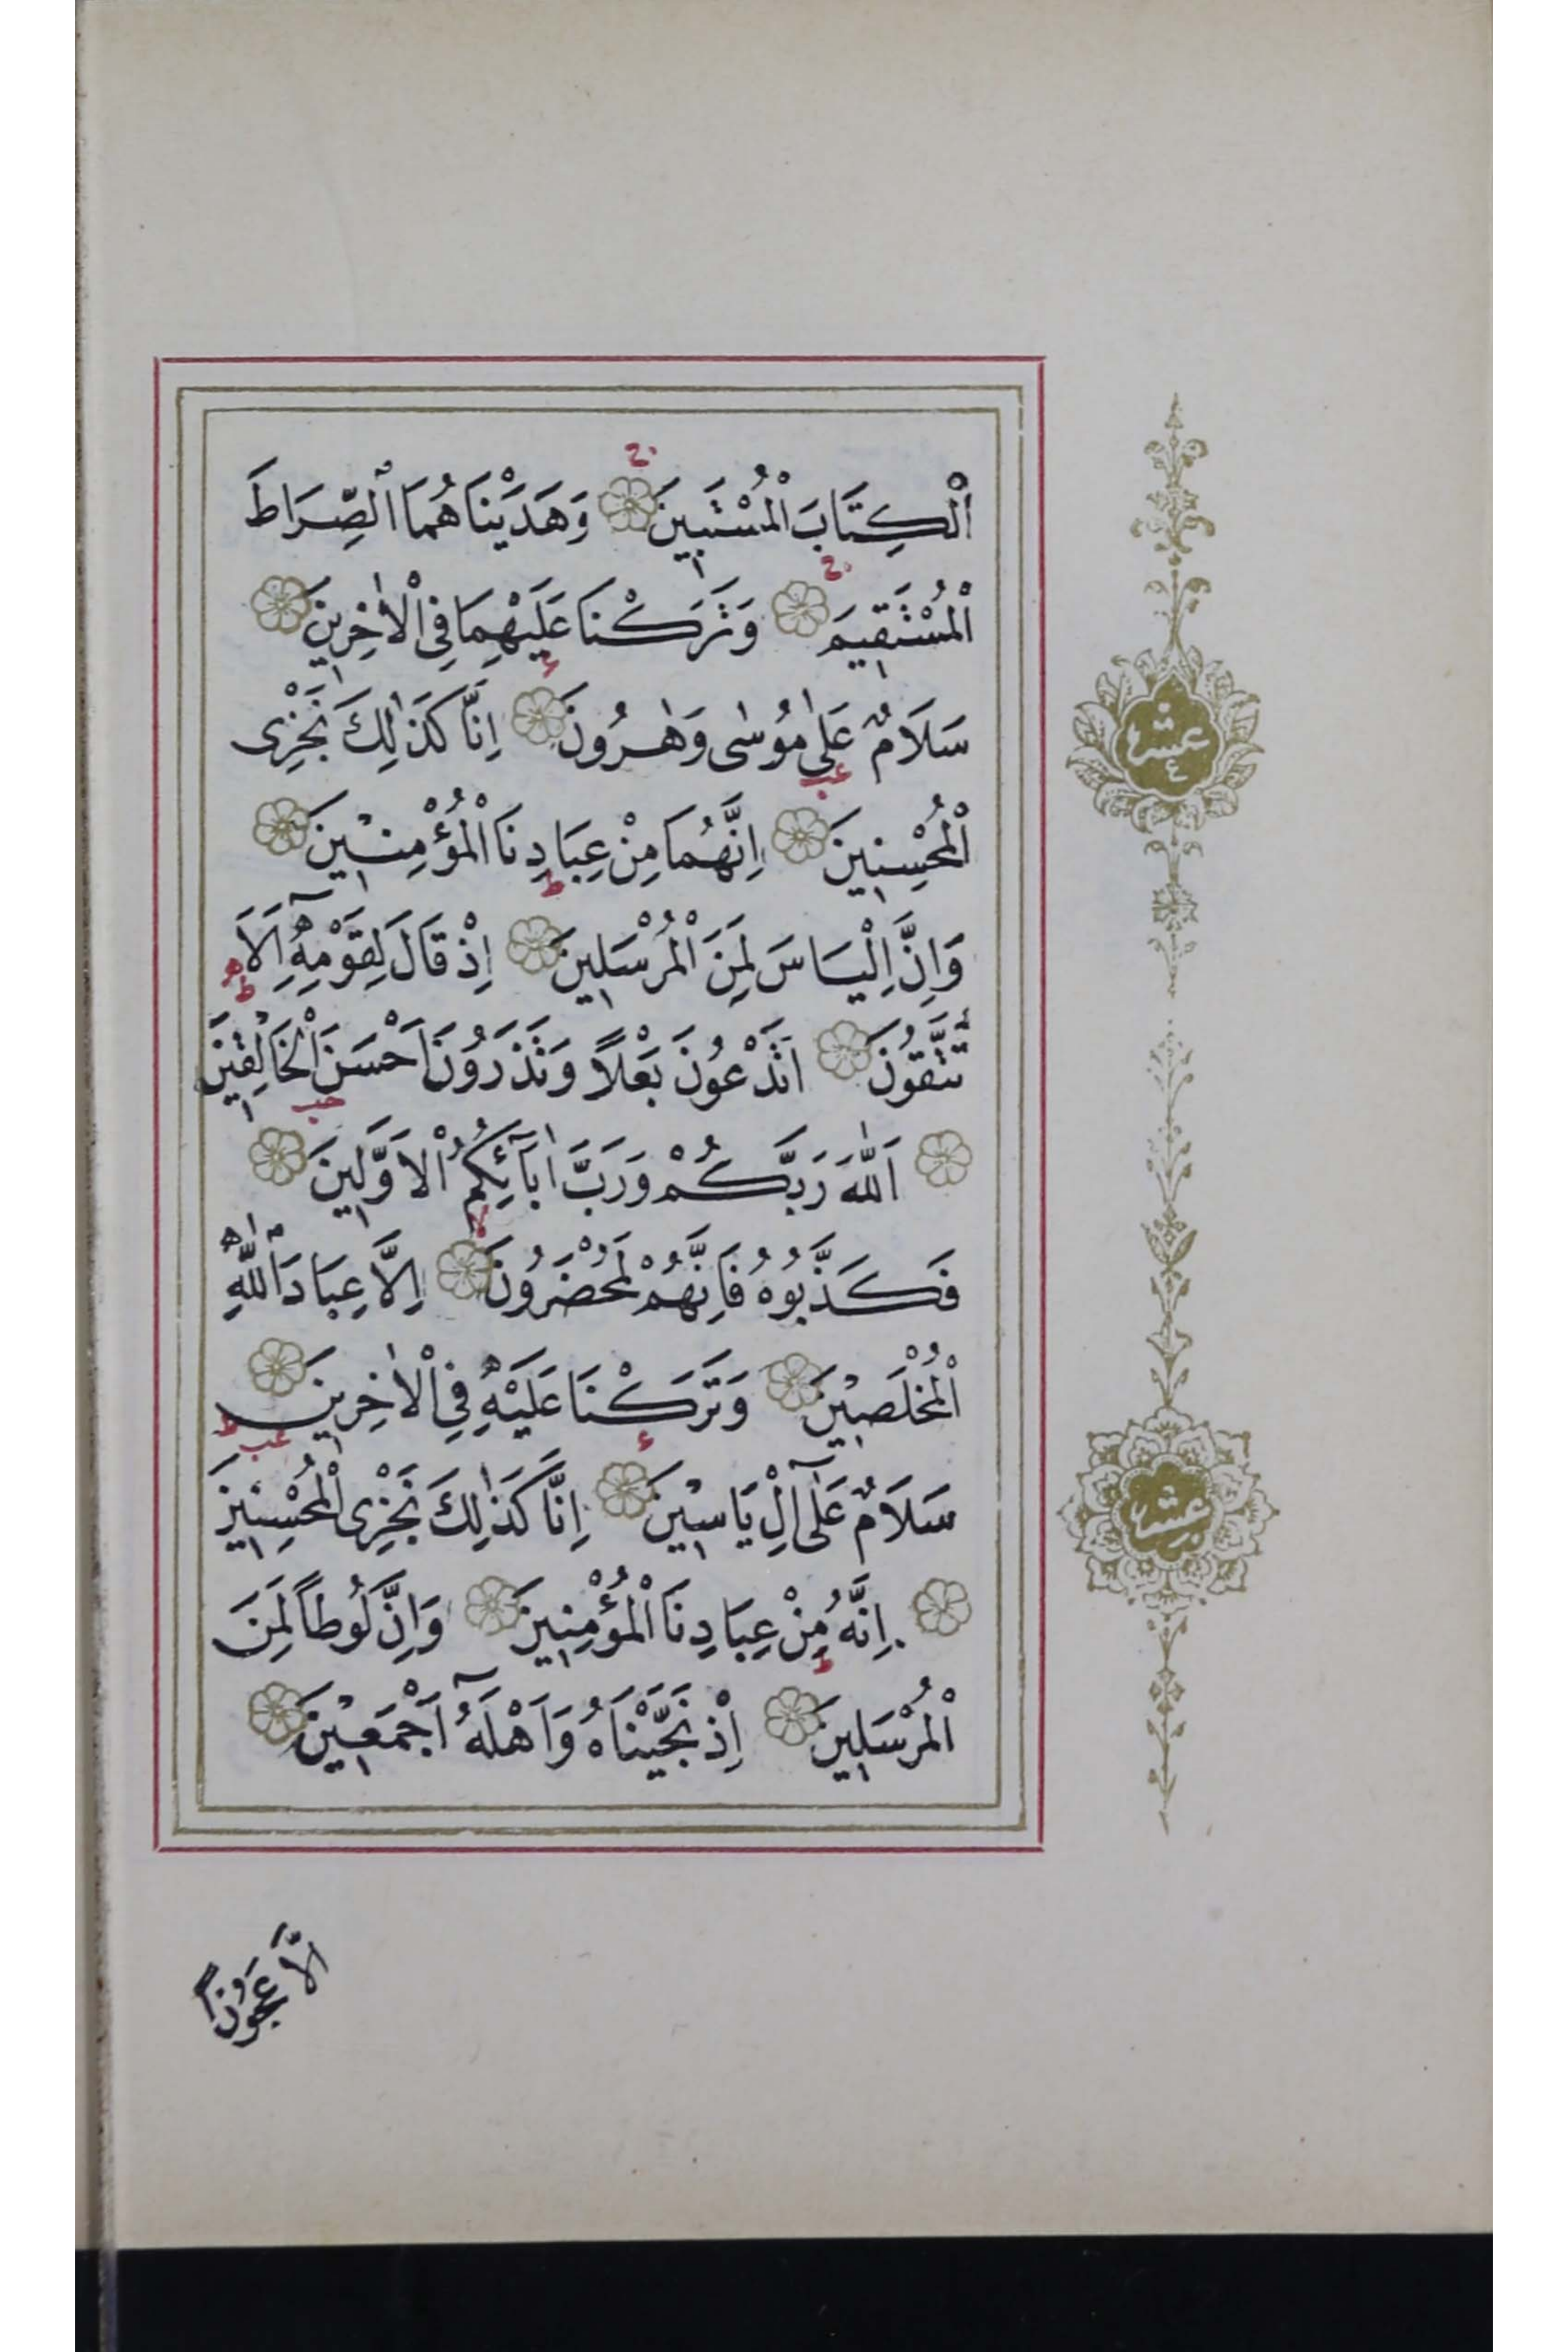 اَلْكِتَابَ الْمُسْتَبِينَ وَهَدَيْنَاهُمَا الصِّرَاطَ
الْمُسْتَقِيمَ وَتَرَكْنَا عَلَيْهِمَا فِى الْاٰخِرِينَ
سَلَامٌ عَلٰى مُوسٰى وَهٰرُونَ اِنَّا كَذٰلِكَ نَجْزِى
الْمُحْسِنِينَ اِنَّهُمَا مِنْ عِبَادِنَا الْمُؤْمِنِينَ
وَاِنَّ اِلْيَاسَ لَمِنَ الْمُرْسَلِينَ اِذْ قَالَ لِقَوْمِهِٓ اَلَا
تَتَّقُونَ اَتَدْعُونَ بَعْلًا وَتَذَرُونَ اَحْسَنَ الْخَالِقِينَ
اَللّٰهَ رَبَّكُمْ وَرَبَّ اٰبَآئِكُمُ الْاَوَّلِينَ
فَكَذَّبُوهُ فَاِنَّهُمْ لَمُحْضَرُونَ اِلَّا عِبَادَ اللّٰهِ
الْمُخْلَصِينَ وَتَرَكْنَا عَلَيْهِ فِى الْاٰخِرِينَ
سَلَامٌ عَلٰٓى اٰلِ يَاسِينَ اِنَّا كَذٰلِكَ نَجْزِى الْمُحْسِنِينَ
اِنَّهُ مِنْ عِبَادِنَا الْمُؤْمِنِينَ وَاِنَّ لُوطًا لَمِنَ
الْمُرْسَلِينَ اِذْ نَجَّيْنَاهُ وَاَهْلَهُٓ اَجْمَعِينَ
عشر ٤
عشر
اِلَّا عَجُوزًا